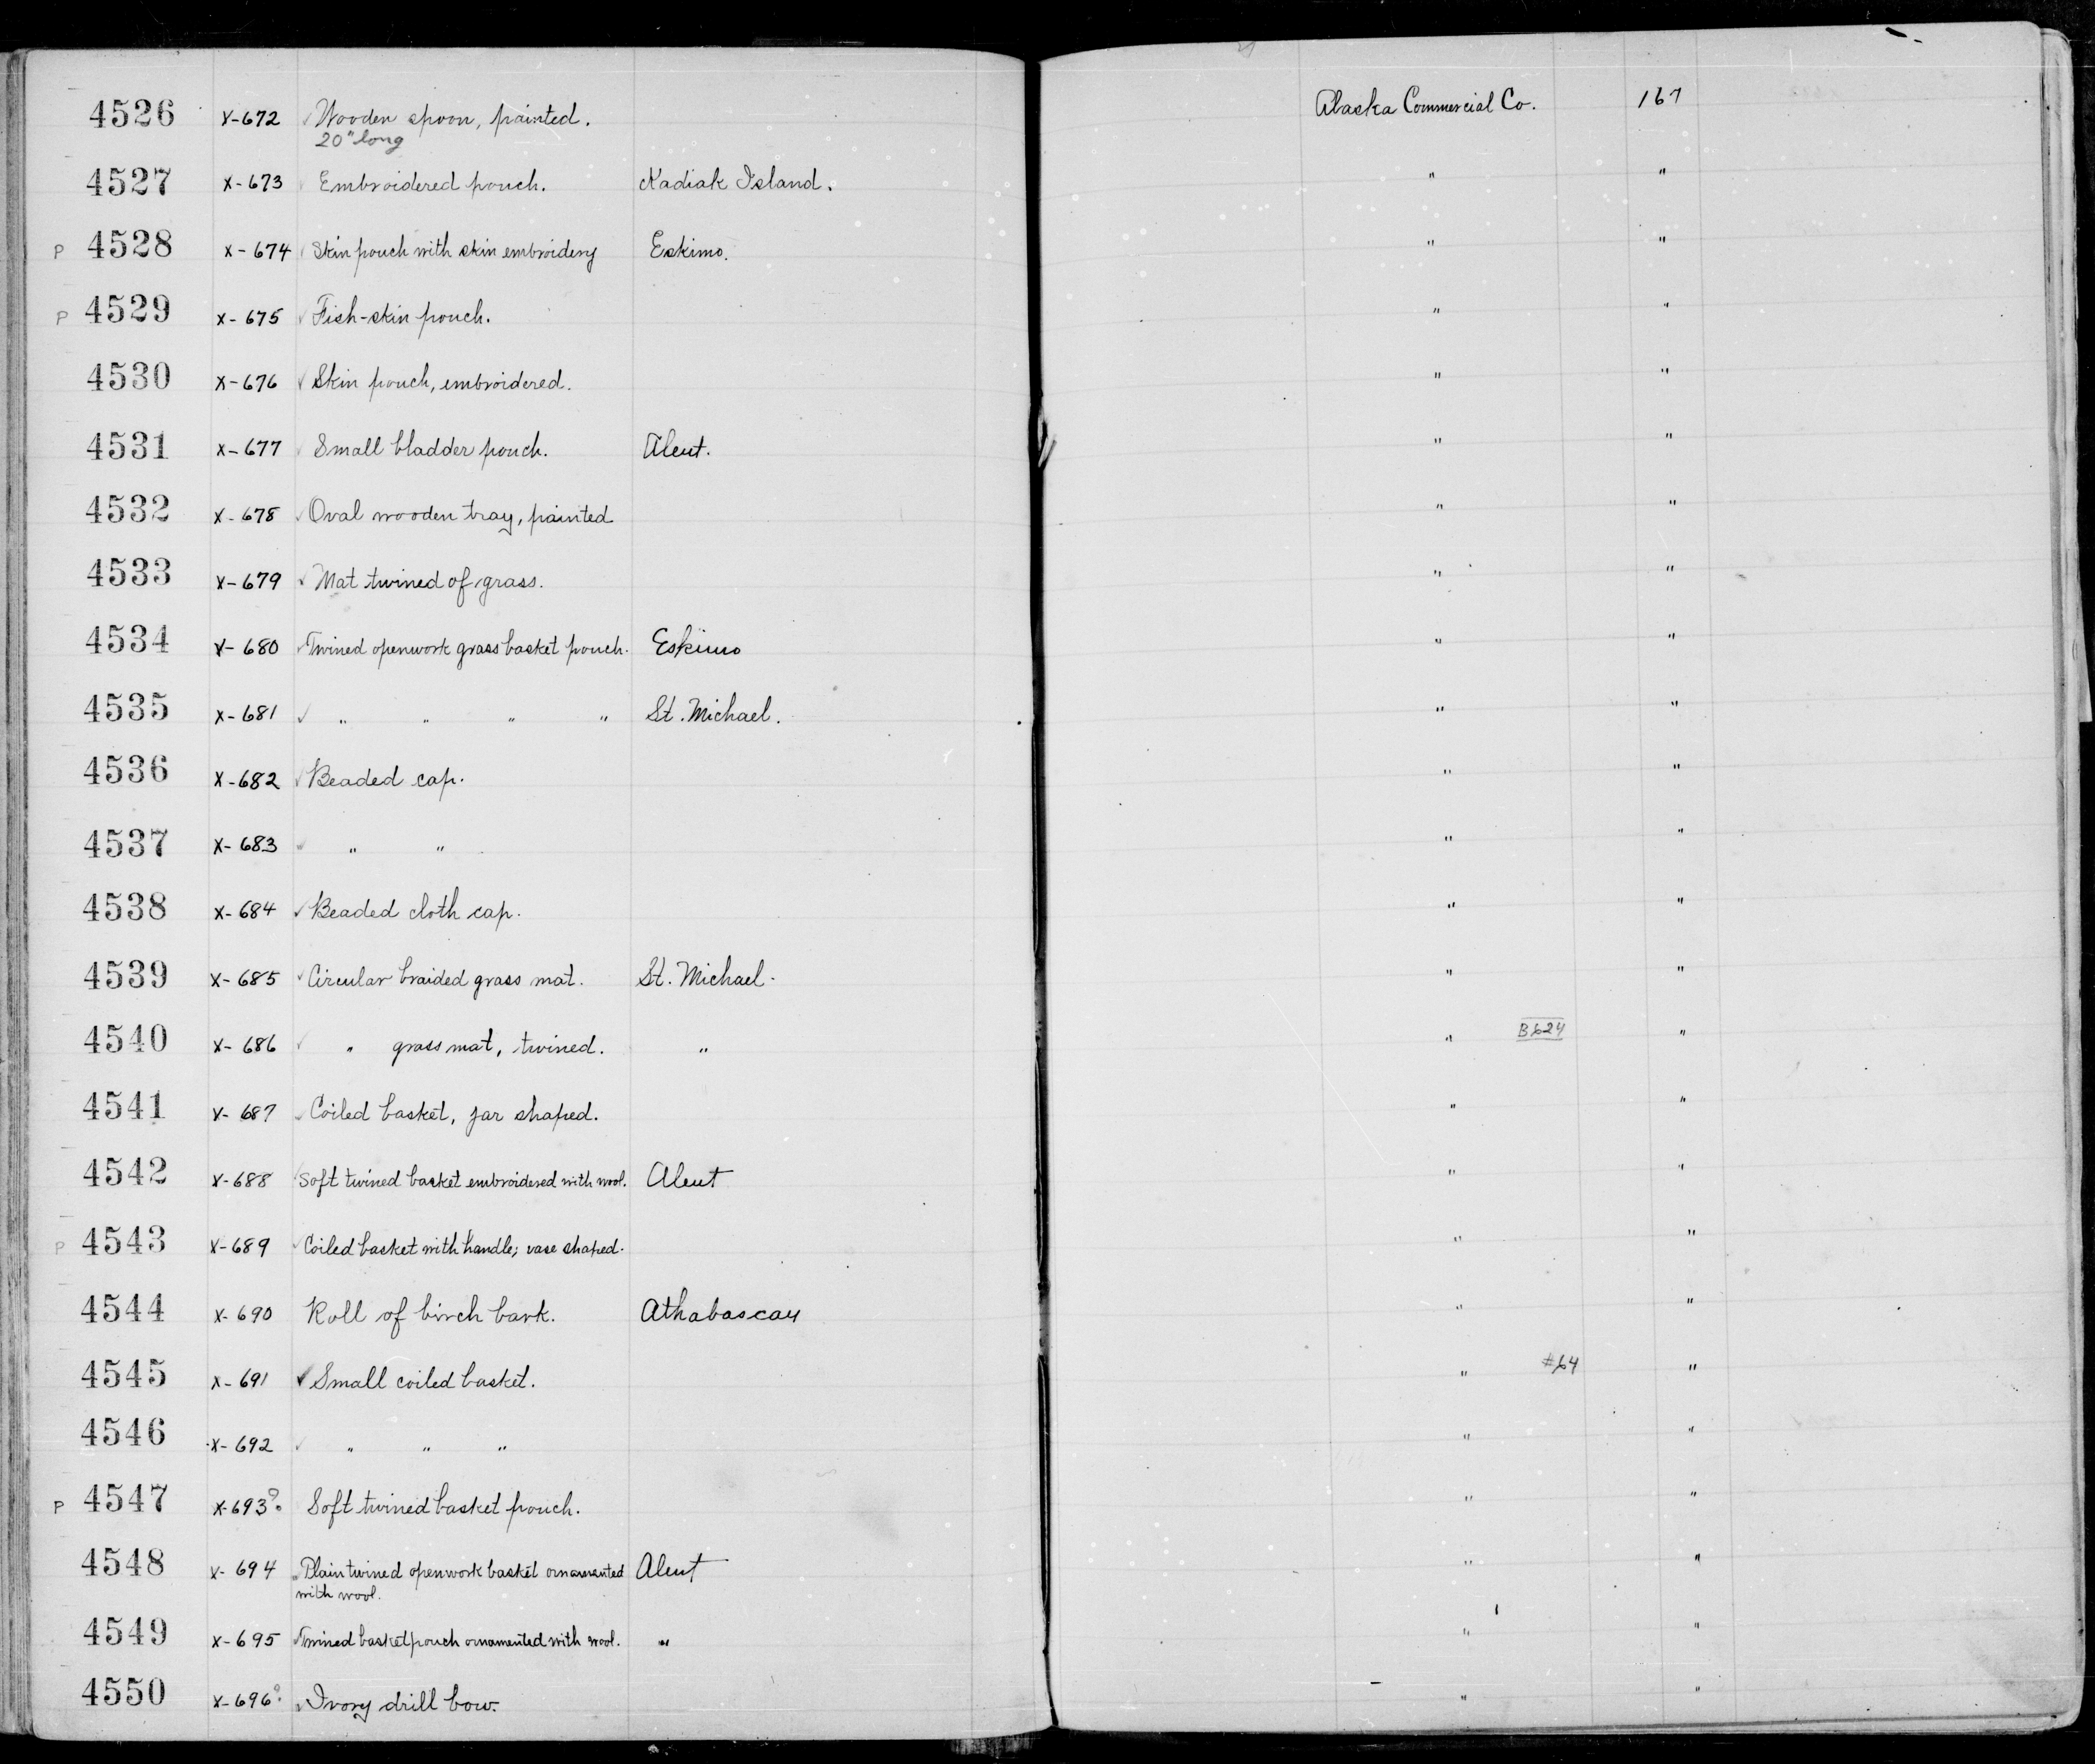 4526 X-672 ✓ Wooden spoon, painted. Alaska Commercial Co. 167
20" long
4527 X-673 Embroidered pouch. Kadiak Island. " "
P 4528 X-674 Skin pouch with skin embroidery Eskimo. " "
P 4529 X-675 ✓ Fish-skin pouch. " "
4530 X-676 ✓ Skin pouch, embroidered. " "
4531 X-677 ✓ Small bladder pouch. Aleut. " "
4532 X-678 ✓ Oval wooden tray, painted " "
4533 X-679 ✓ Mat twined of grass. " "
4534 X-680 ✓ Twined openwork grass basket pouch. Eskimo " "
4535 X-681 ✓ " " " " St. Michael. " "
4536 X-682 ✓ Beaded cap. " "
4537 X-683 ✓ " " " "
4538 X-684 ✓ Beaded cloth cap. " "
4539 X-685 ✓ Circular braided grass mat. St. Michael. " "
4540 X-686 ✓ " grass mat, twined. " " B624 "
4541 X-687 ✓ Coiled basket, jar shaped. " "
4542 X-688 ✓ Soft twined basket embroidered with wool. Aleut " "
P 4543 X-689 ✓ Coiled basket with handle; vase shaped. " "
4544 X-690 Roll of birch bark. Athabascan " "
4545 X-691 ✓ Small coiled basket. " #64 "
4546 X-692 ✓ " " " " "
P 4547 X-693? Soft twined basket pouch. " "
4548 X-694 ✓ Plain twined openwork basket ornamented Aleut " "
with wool.
4549 X-695 ✓ Twined basket pouch ornamented with wool. " " "
4550 X-696? ✓ Ivory drill bow. " "